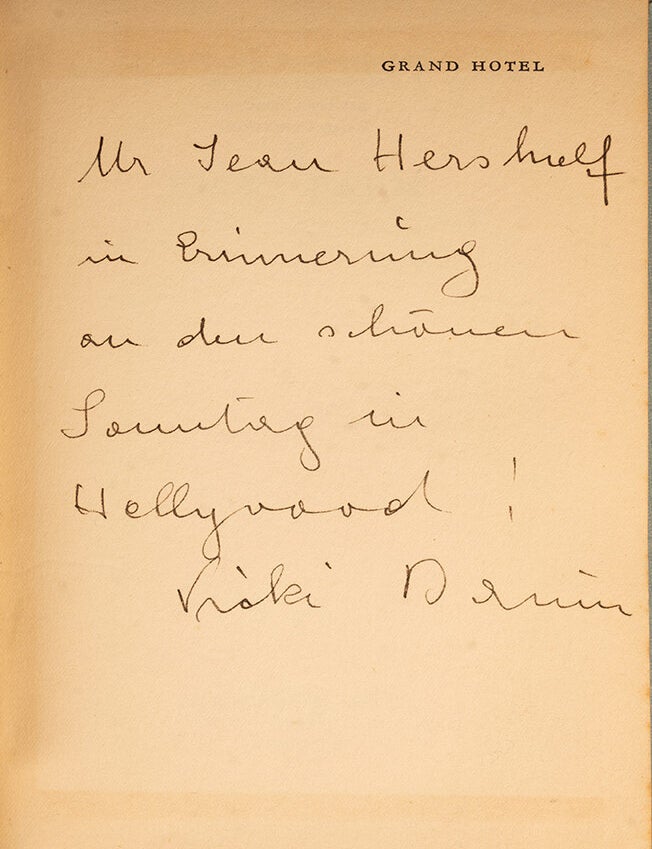 GRAND HOTEL
Mr Jean Hersholt
in Erinnerung
an den schönen
Sonntag in
Hollywood !
Vicki Baum